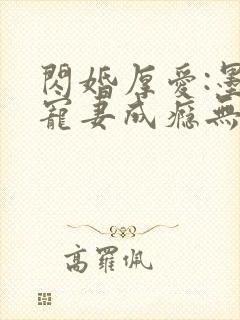 閃婚厚愛:墨
寵妻成癮無
高羅佩